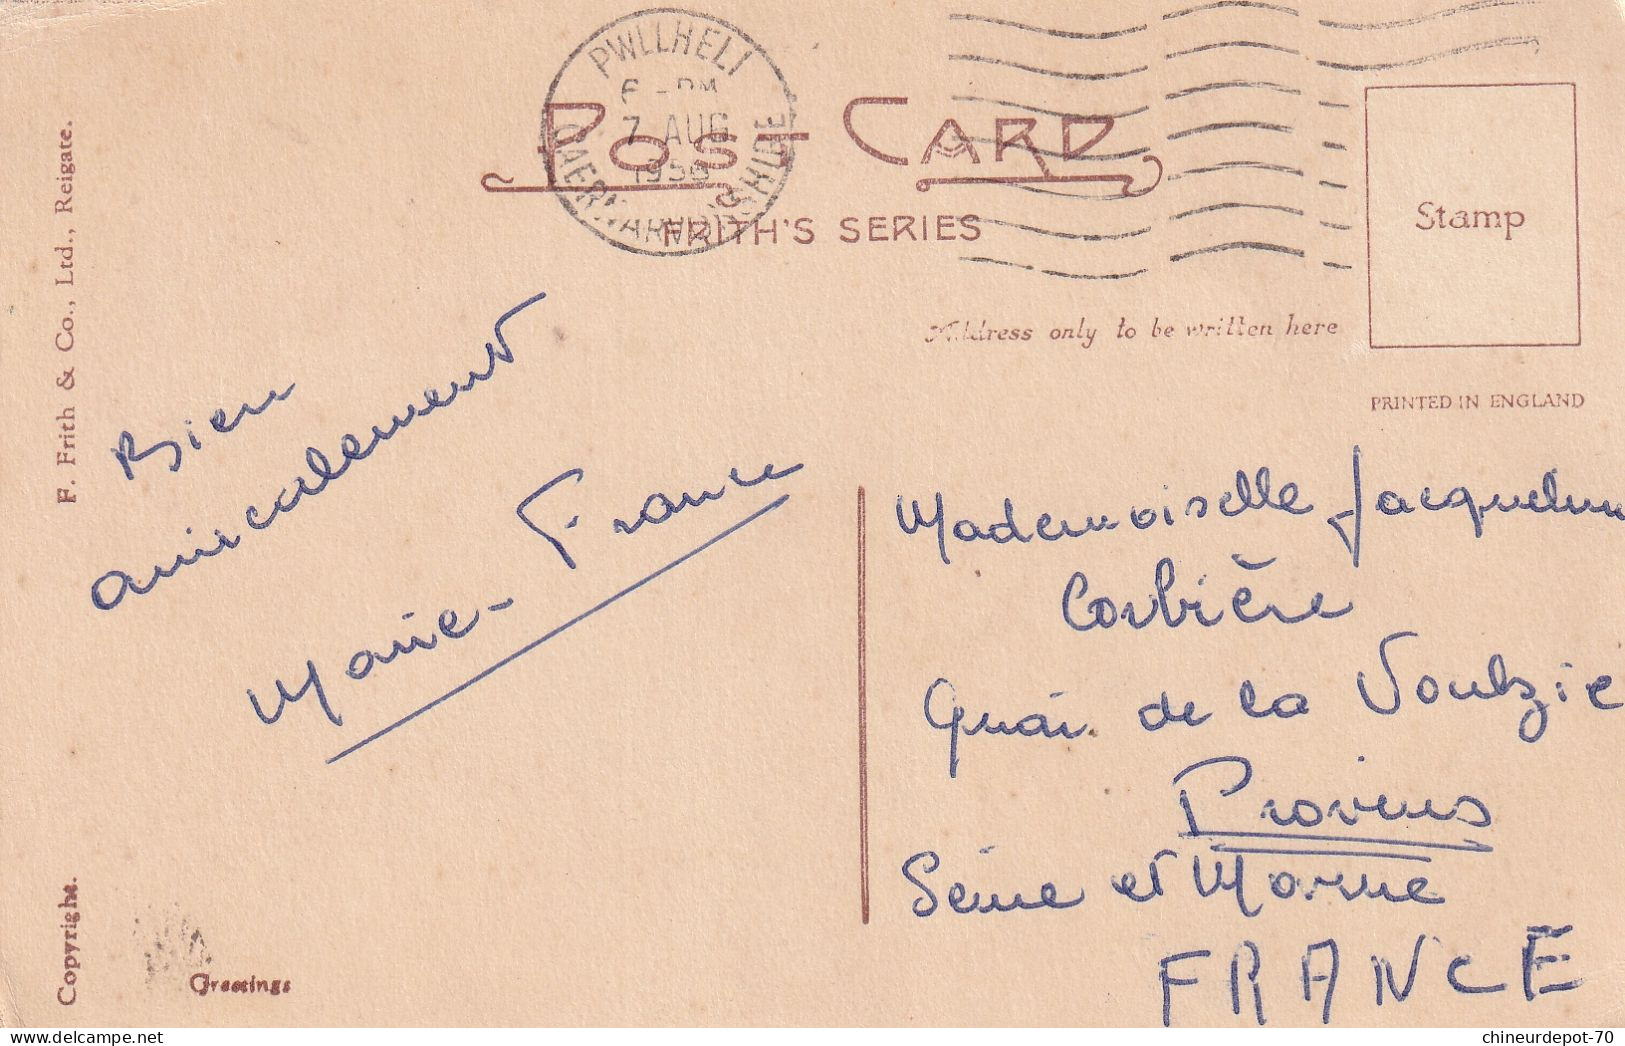 PWLLHELI
7 AUG
CAERNARVONSHIRE
POST CARD
FRITH'S SERIES
Stamp
Address only to be written here
PRINTED IN ENGLAND
F. Frith & Co., Ltd., Reigate.
Copyright.
Greetings
Bien
amicalement
Marie-France
Mademoiselle Jacqueline
Corbière
Quai de la Voulzie
Provins
Seine et Marne
FRANCE
chineurdepot-70